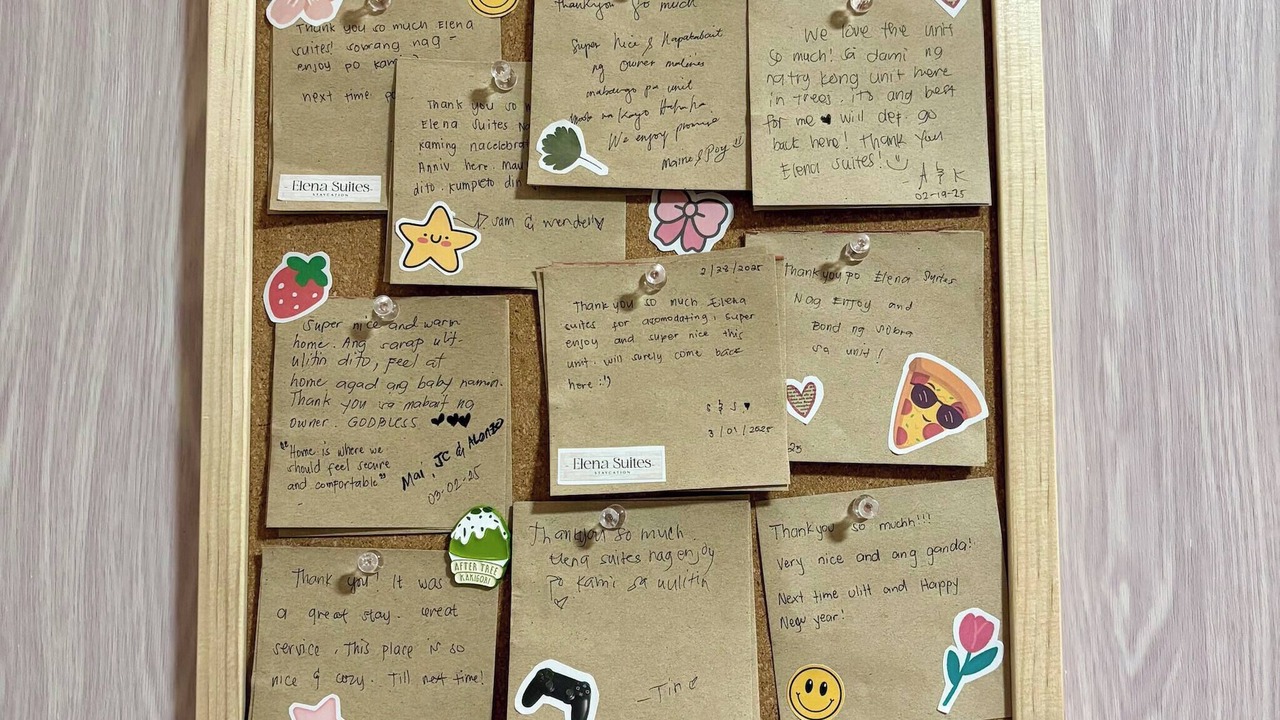 Thank you so much Elena
suites! sobrang nag-
enjoy po kami
next time
Elena Suites
STAYCATION
Thank you so
Elena Suites
kaming nacelebra
Anniv here.
dito. kumpleto din
Jam & Wendell
Thankyou so much
Super Nice &
ng owner malinis
mabango pa unit
na kayo Hahaha
We enjoy promise
Maine & Poy
We love the unit
so much! Sa dami ng
natry kong unit here
in trees. its and best
for me ♥ will def. go
back here! Thank you
Elena Suites!
- A & K
02-19-25
Super nice and warm
home. Ang sarap ulit-
ulitin dito, feel at
home agad ang baby namin.
Thank you sa mabait ng
owner. GODBLESS ♥♥♥
"Home is where we
should feel secure
and comfortable"
Mai, JC & Alonzo
03-02-25
2/28/2025
Thank you so much Elena
suites for acomodating, super
enjoy and super nice this
unit. will surely come back
here :')
S & J ♥
3/01/2025
Elena Suites
STAYCATION
Thankyou po Elena Suites
Nag Enjoy and
Bond ng sobra
sa unit!
25
Thank you! It was
a great stay. Great
service. This place is so
nice & cozy. Till next time!
AFTER TREE
KAKIGORI
Thankyou so much
Elena suites nag enjoy
Po kami sa uulitin
- Tin
Thankyou so muchh!!!
Very nice and ang ganda!
Next time ulit and Happy
New year!